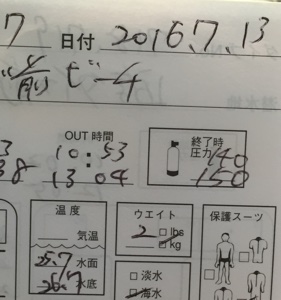 7 日付 2016.7.13
前ビーチ
OUT 時間
10:53
13:04
終了時
圧力 140
150
温度
気温
25.7 水面
26.7 水底
ウエイト
2 □ lbs
□ kg
□ 淡水
□ 海水
保護スーツ